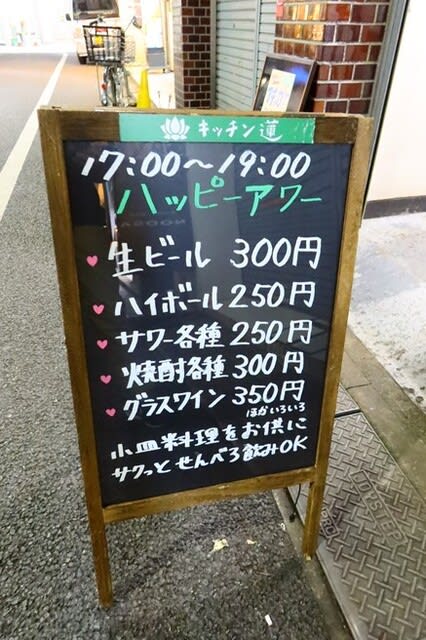 キッチン蓮
17:00〜19:00
ハッピーアワー
生ビール 300円
ハイボール 250円
サワー各種 250円
焼酎各種 300円
グラスワイン 350円
ほかいろいろ
小皿料理をお供に
サクっと せんべろ飲みOK